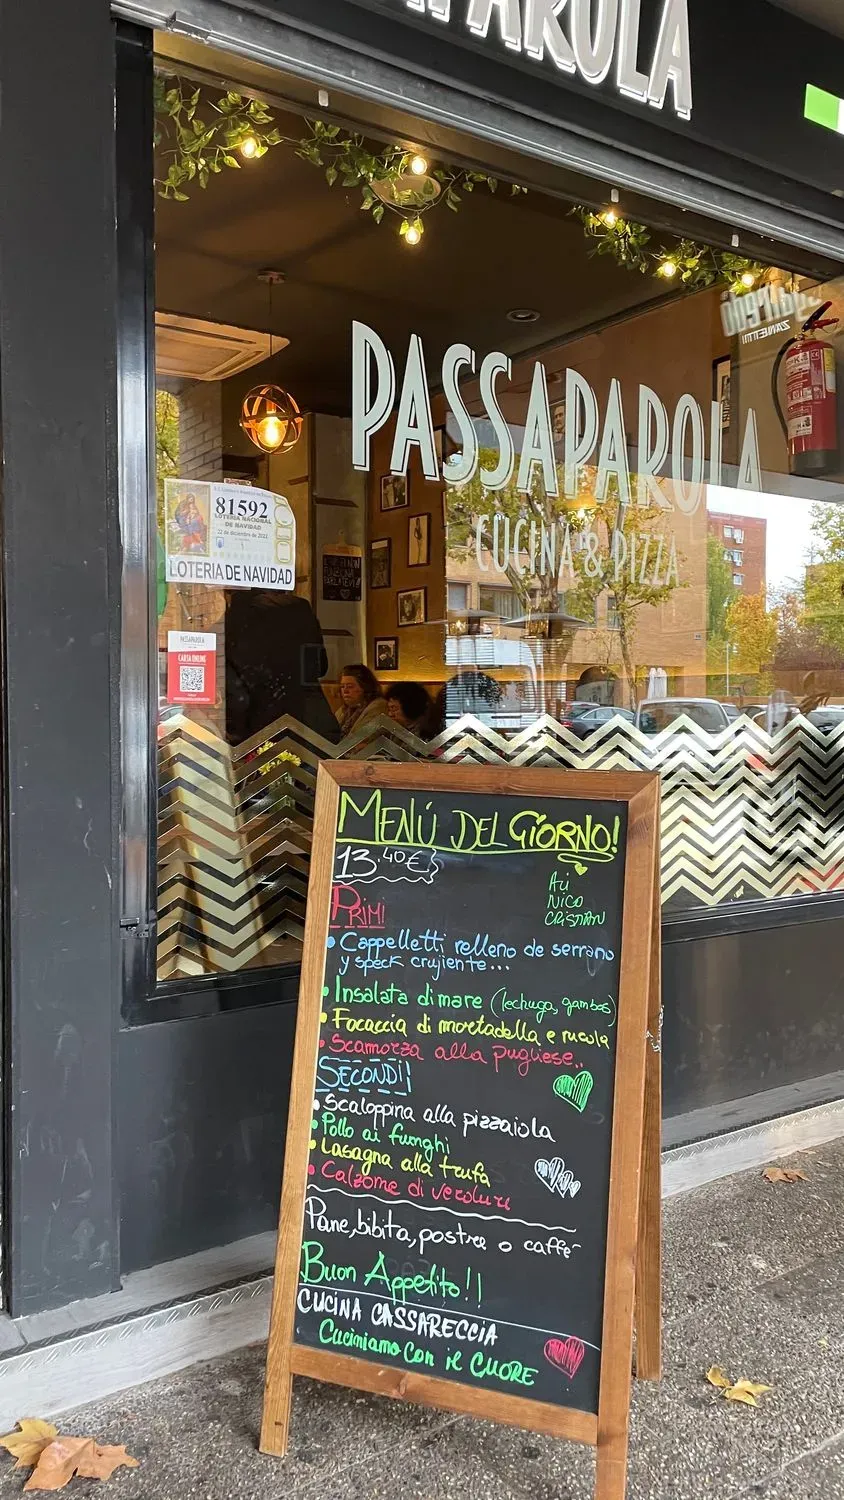 PAROLA
PASSAPAROLA
CUCINA & PIZZA
81592
LOTERIA NACIONAL
DE NAVIDAD
22 de diciembre de 2022
LOTERIA DE NAVIDAD
PASSAPAROLA
CARTA ONLINE
ZANETTI
MENÚ DEL GIORNO!
13.40€
Ari
NICO
CRISTIAN
PRIMI
• Cappelletti relleno de serrano
y speck crujiente...
• Insalata di mare (lechuga, gambas)
• Focaccia di mortadella e rucola
• Scamorza alla pugliese..
SECONDI!
• Scaloppina alla pizzaiola
• Pollo ai funghi
• Lasagna alla trufa
• Calzone di verdure
Pane, bibita, postre o caffè
Buon Appetito!!
CUCINA CASSARECCIA
Cuciniamo con il CUORE